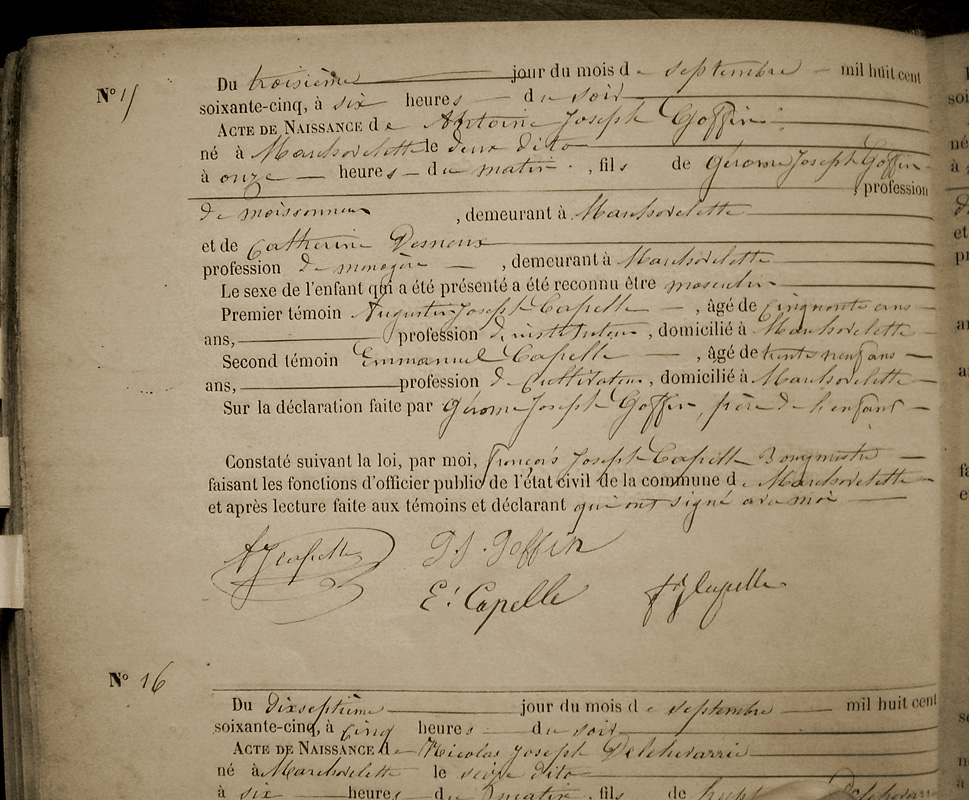 Nº 15
Du troisième jour du mois de septembre mil huit cent
soixante-cinq, à six heures du soir
ACTE DE NAISSANCE de Antoine Joseph Goffin
né à Marchovelette le deux dito
à onze heures du matin, fils de Gérome Joseph Goffin
, profession
de moissonneur, demeurant à Marchovelette
et de Catherine
profession de menagère, demeurant à Marchovelette
Le sexe de l'enfant qui a été présenté a été reconnu être masculin
Premier témoin Augustin Joseph Capelle, âgé de cinquante ans
ans, profession d'instituteur, domicilié à Marchovelette
Second témoin Emmanuel Capelle, âgé de trente neuf ans
ans, profession de cultivateur, domicilié à Marchovelette
Sur la déclaration faite par Gérome Joseph Goffin, père de l'enfant
Constaté suivant la loi, par moi, françois Joseph Capelle Bourgmestre
faisant les fonctions d'officier public de l'état civil de la commune de Marchovelette
et après lecture faite aux témoins et déclarant qui ont signé avec moi
AJ Capelle GJ. Goffin
E. Capelle fs J Capelle
Nº 16
Du dixseptième jour du mois de septembre mil huit cent
soixante-cinq, à cinq heures du soir
ACTE DE NAISSANCE de Nicolas Joseph
né à Marchovelette le seize dito
à six heures du matin, fils de